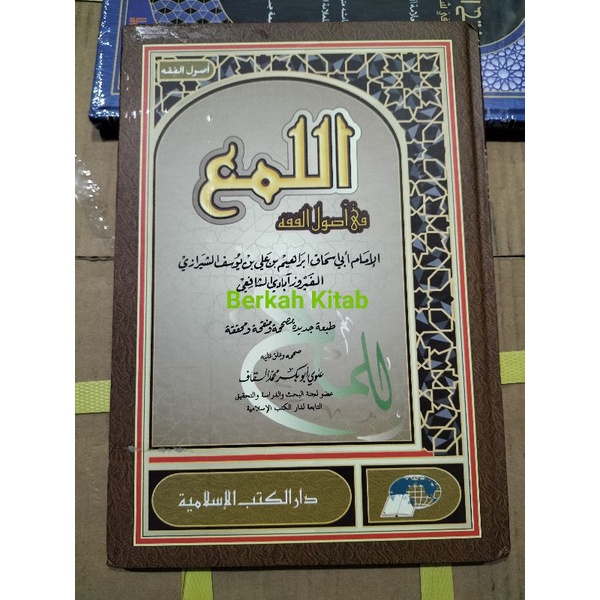 أصول الفقه
اللمع
في أصول الفقه
الإمام أبي سحاق إبراهيم بن علي بن يوسف الشيرازي
الفيروزآبادي الشافعي
Berkah Kitab
طبعة جديدة مصححة ومنقحة ومحققة
صححه وعلق عليه
علوي أبو بكر محمد السقاف
عضو لجنة البحث والدراسة والتحقيق
التابعة لدار الكتب الإسلامية
اللمع
دار الكتب الإسلامية